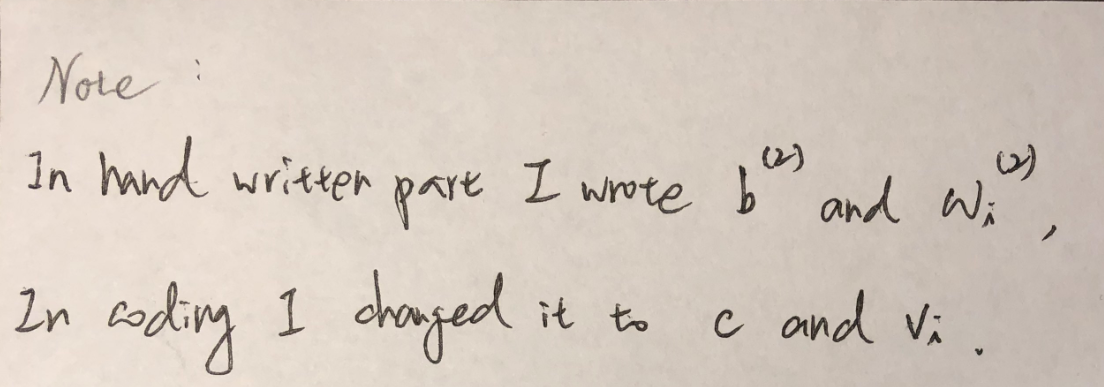 Note :
In hand written part I wrote b⁽²⁾ and wᵢ⁽²⁾,
In coding I changed it to c and vᵢ.